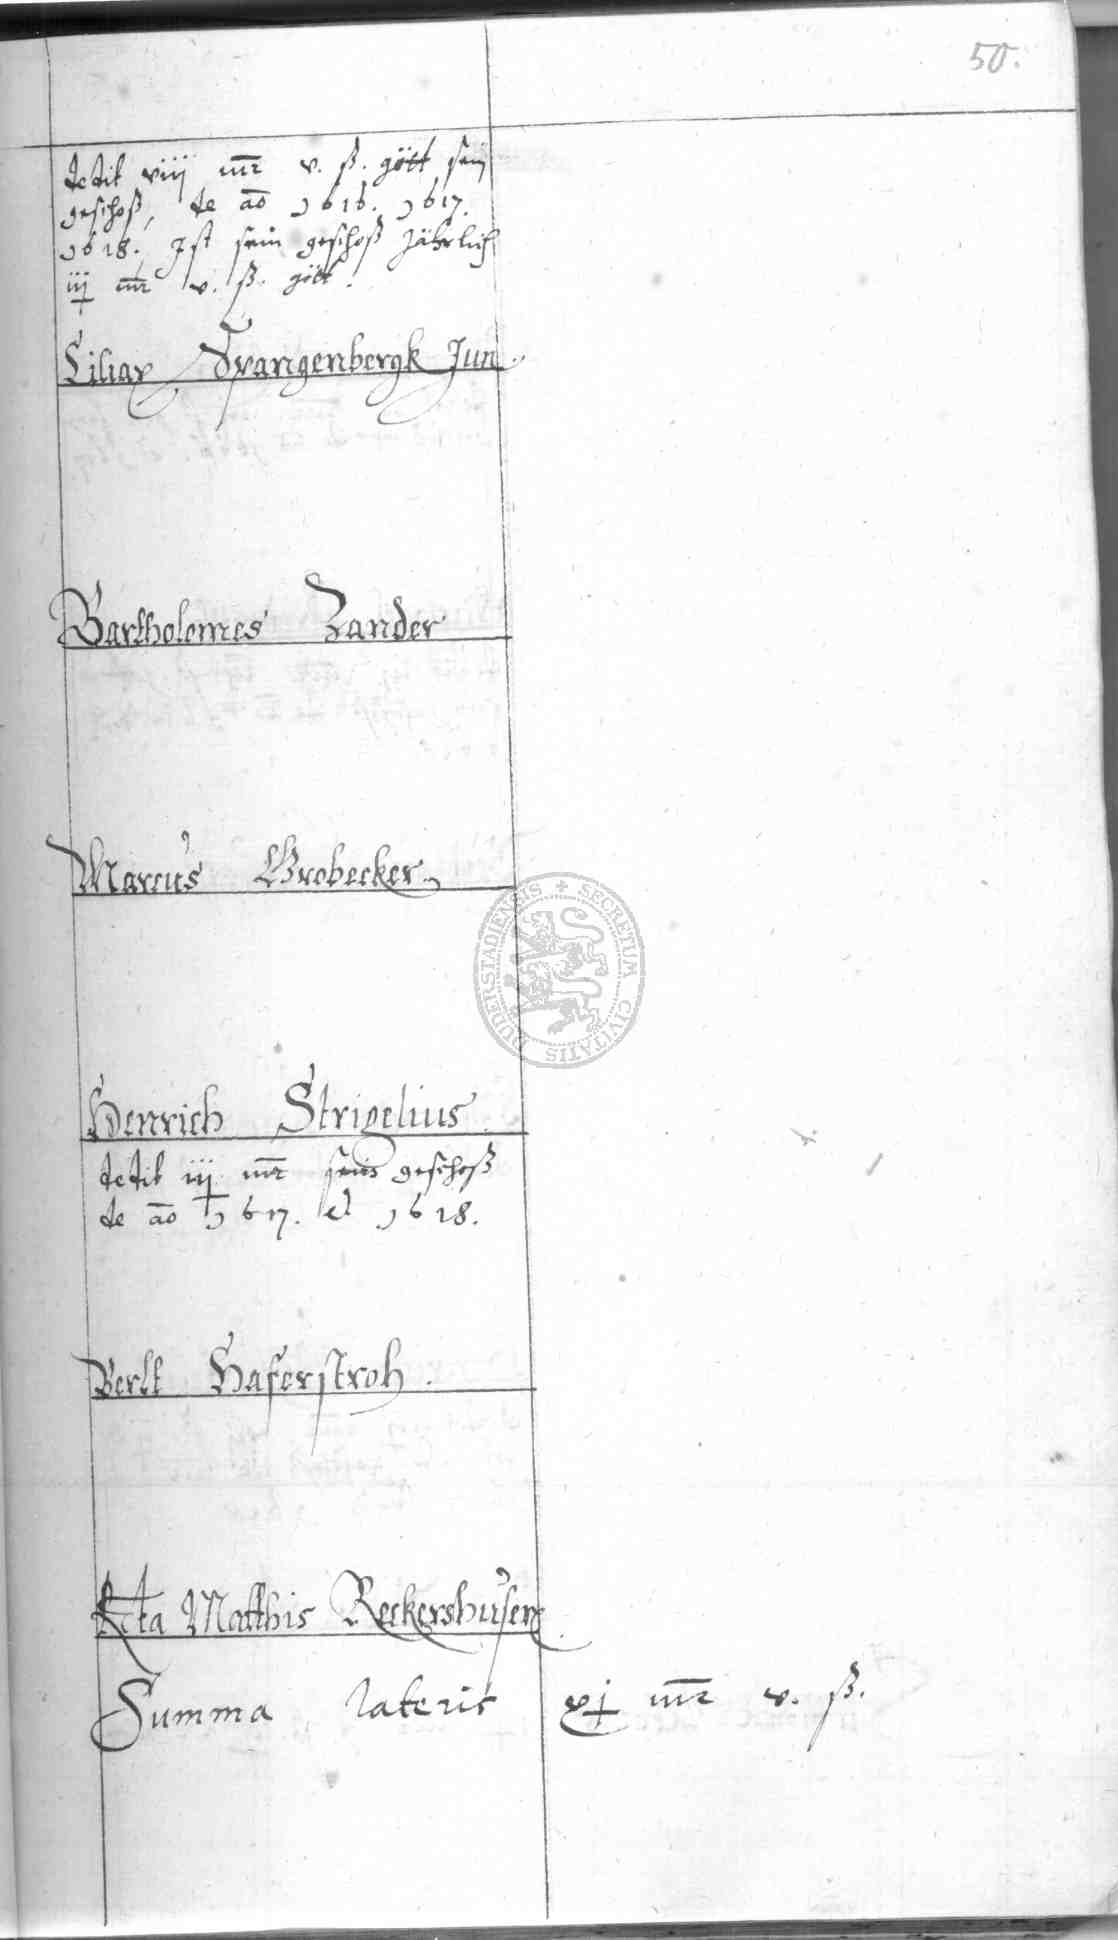 50.
dedit viiij mr v. ß. gött sein
geschoß, de ao 1616. 1617.
1618. Ist sein geschoß Jährlich
iij mr v. ß. gött.
Ciliax Spangenbergk Jun.
Bartholomes Zander
Marcus Grobecker
SECRETUM CIVITATIS DUDERSTADIENSIS
Henrich Strigelius
dedit iij mr sein geschoß
de ao 1617. et 1618.
Berlt Haferstroh.
Rcta Matthis Reckershusen
Summa lateris xj mr v. ß.